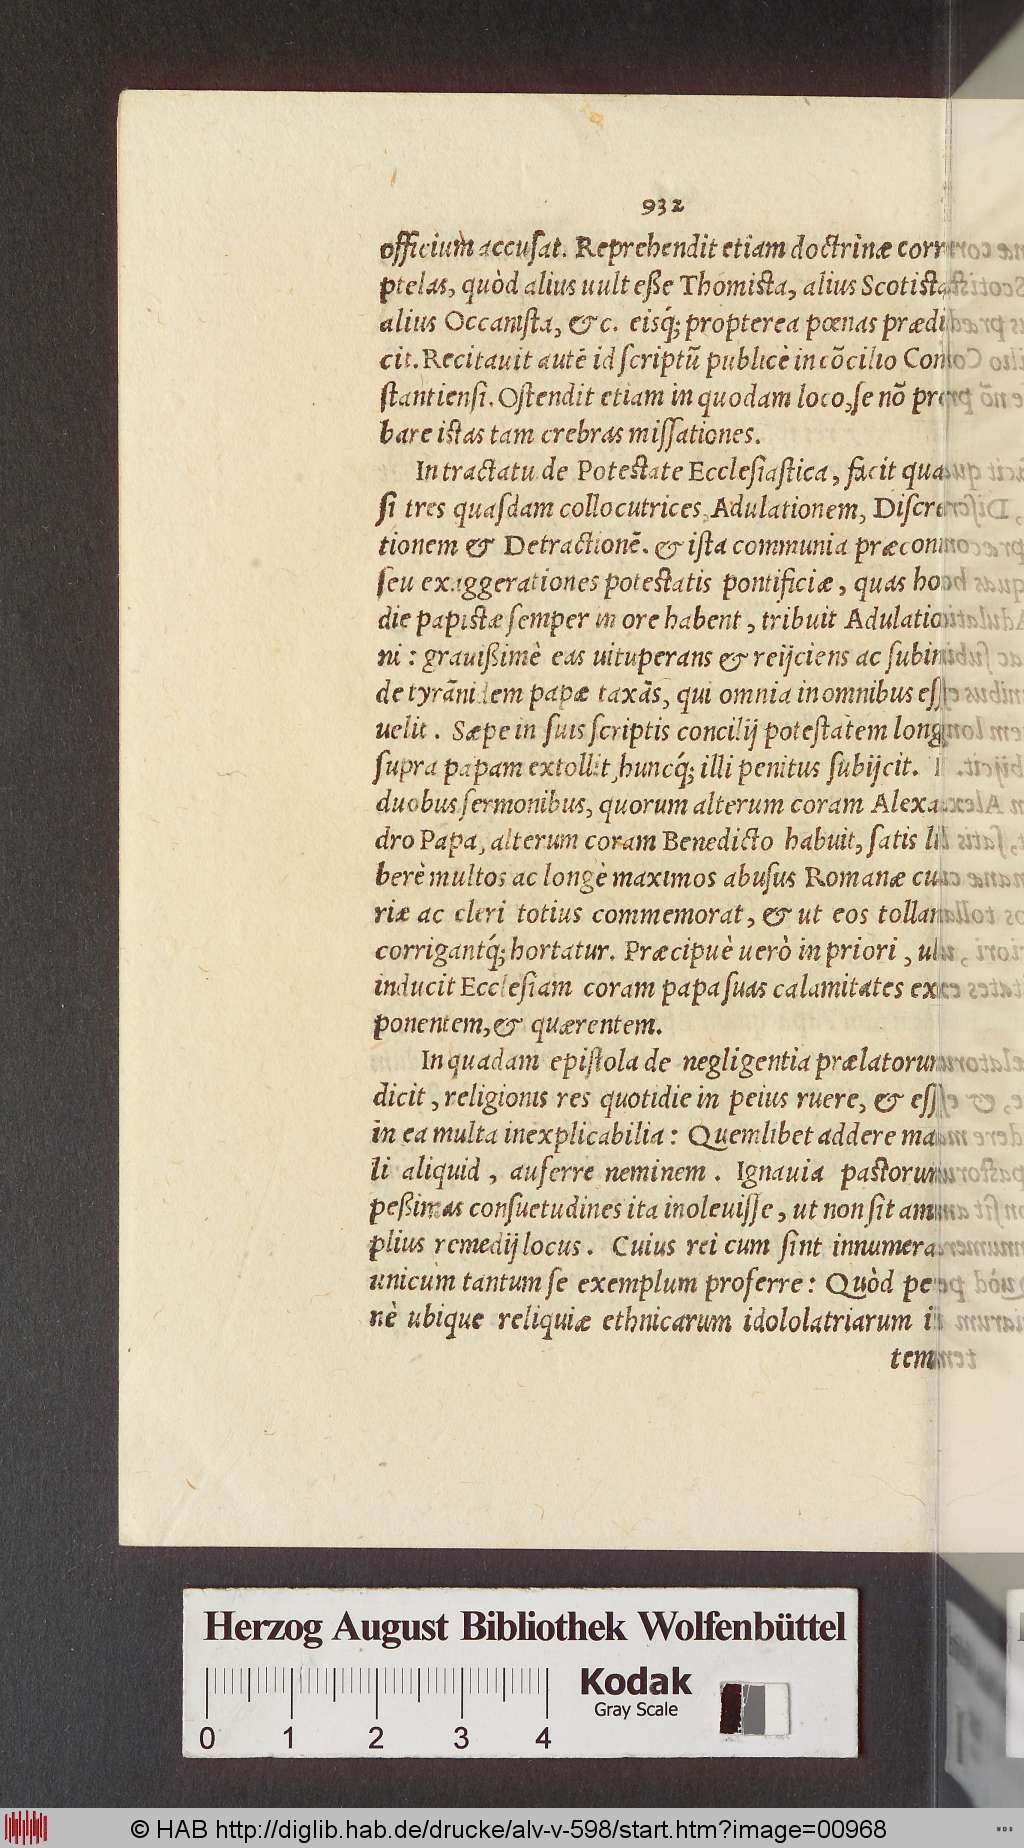 932
officium accusat. Reprehendit etiam doctrinæ corr
ptelas, quòd alius uult eße Thomista, alius Scotista
alius Occanista, &c. eisq́; propterea pœnas prædi
cit. Recitauit autē id scriptū publicè in cōcilio Con
stantiensi. Ostendit etiam in quodam loco, se nō pro
bare istas tam crebras missationes.
In tractatu de Potestate Ecclesiastica, facit qua
si tres quasdam collocutrices, Adulationem, Discre
tionem & Detractionē. & ista communia præconi
seu exaggerationes potestatis pontificiæ, quas ho
die papistæ semper in ore habent, tribuit Adulatio
ni: grauißimè eas uituperans & reijciens ac subin
de tyrānidem papæ taxās, qui omnia in omnibus ess
uelit. Sæpe in suis scriptis concilij potestatem long
supra papam extollit, huncq́; illi penitus subijcit. I
duobus sermonibus, quorum alterum coram Alexa
dro Papa, alterum coram Benedicto habuit, satis li
berè multos ac longè maximos abusus Romanæ cu
riæ ac cleri totius commemorat, & ut eos tollan
corrigantq́; hortatur. Præcipuè uerò in priori, ub
inducit Ecclesiam coram papa suas calamitates ex
ponentem, & quærentem.
In quadam epistola de negligentia prælatorum
dicit, religionis res quotidie in peius ruere, & ess
in ea multa inexplicabilia: Quemlibet addere ma
li aliquid, auferre neminem. Ignauia pastorum
peßimas consuetudines ita inoleuisse, ut non sit am
plius remedij locus. Cuius rei cum sint innumera
unicum tantum se exemplum proferre: Quòd pe
nè ubique reliquiæ ethnicarum idololatriarum i
tem
Herzog August Bibliothek Wolfenbüttel
Kodak
Gray Scale
0 1 2 3 4
© HAB http://diglib.hab.de/drucke/alv-v-598/start.htm?image=00968